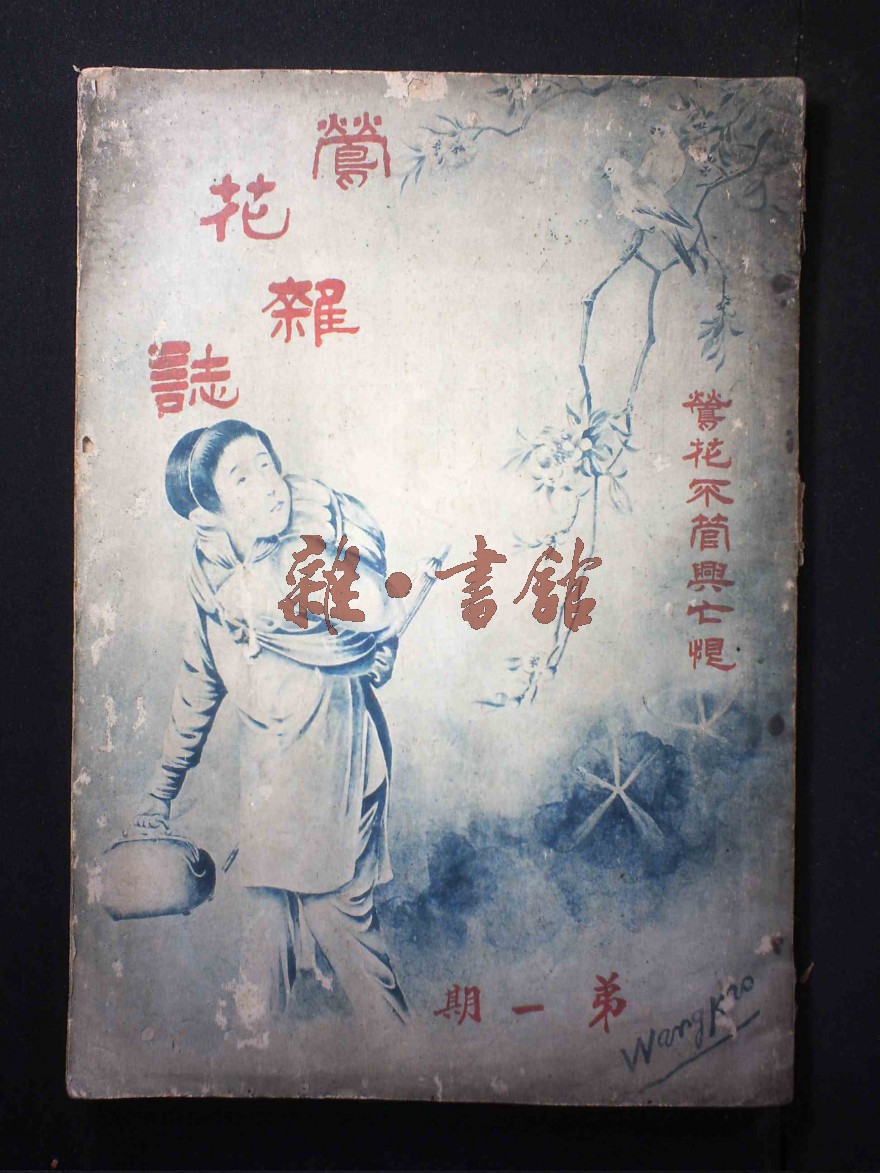 鶯花雜誌
鶯花不管興亡恨
雜·書館
弟一期
Wang Kio